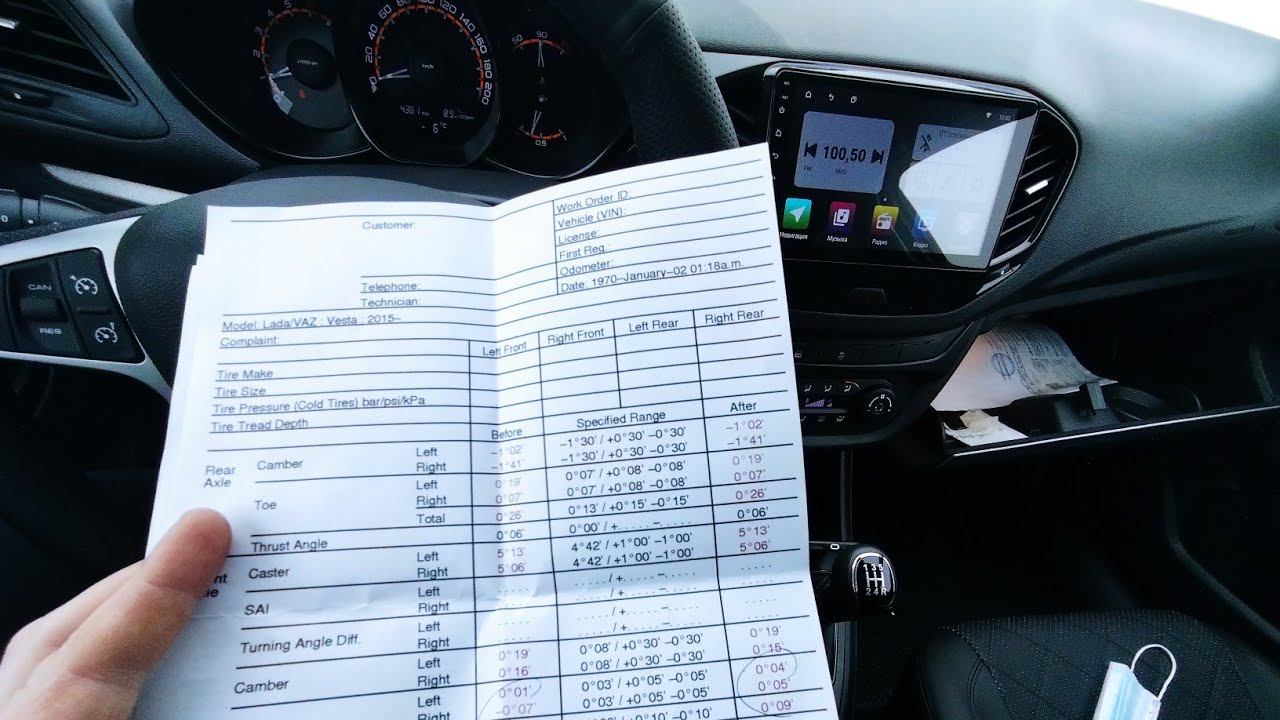 438.1 km
8.9
-6°C
CAN
RES
100,50
FM
МГц
12:52
Навигация
Музыка
Радио
Видео
Customer:
Work Order ID:
Vehicle (VIN):
License:
First Reg.:
Odometer:
Date: 1970-January-02 01:18a.m.
Telephone:
Technician:
Model: Lada/VAZ : Vesta : 2015-
Complaint:
Left Front Right Front Left Rear Right Rear
Tire Make
Tire Size
Tire Pressure (Cold Tires) bar/psi/kPa
Tire Tread Depth
Before Specified Range After
Rear Axle
Camber Left -1°02' -1°30' / +0°30' -0°30' -1°02'
Right -1°41' -1°30' / +0°30' -0°30' -1°41'
Toe Left 0°19' 0°07' / +0°08' -0°08' 0°19'
Right 0°07' 0°07' / +0°08' -0°08' 0°07'
Total 0°26' 0°13' / +0°15' -0°15' 0°26'
Thrust Angle 0°06' 0°00' / +..... -..... 0°06'
Caster Left 5°13' 4°42' / +1°00' -1°00' 5°13'
Right 5°06' 4°42' / +1°00' -1°00' 5°06'
SAI Left ..... ..... / +..... -..... .....
Right ..... ..... / +..... -..... .....
Turning Angle Diff. Left ..... ..... / +..... -..... .....
Right ..... ..... / +..... -..... .....
Camber Left 0°19' 0°08' / +0°30' -0°30' 0°19'
Right 0°16' 0°08' / +0°30' -0°30' 0°15'
Left 0°01' 0°03' / +0°05' -0°05' 0°04'
Right -0°07' 0°03' / +0°05' -0°05' 0°05'
+0°10' -0°10' 0°09'